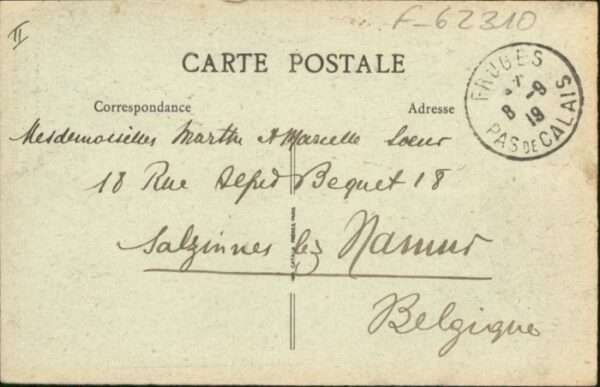 II
F-62310
CARTE POSTALE
FRUGES
8 -9
19
PAS DE CALAIS
Correspondance
Adresse
Mesdemoiselles Marthe et Marcelle Soeur
18 Rue Alfred Bequet 18
Salzinnes lez Namur
Belgique